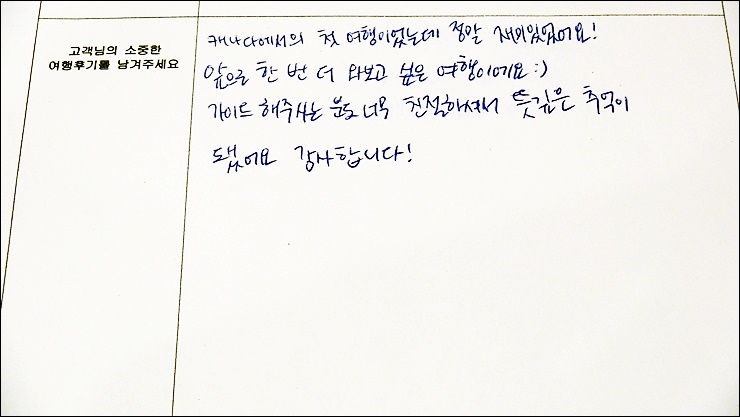 고객님의 소중한
여행후기를 남겨주세요
캐나다에서의 첫 여행이었는데 정말 재미있었어요!
앞으로 한 번 더 와보고 싶은 여행이에요 :)
가이드 해주시는 분도 너무 친절하셔서 뜻깊은 추억이
됐어요 감사합니다!